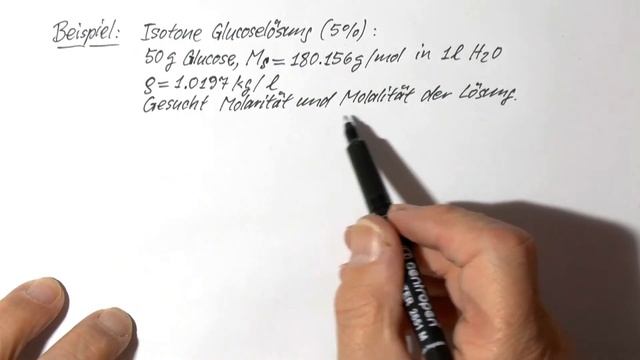 Beispiel: Isotone Glucoselösung (5%):
50 g Glucose, Ms = 180.156 g/mol in 1l H2O
ρ = 1.0197 kg/l
Gesucht Molarität und Molalität der Lösung.
centropen